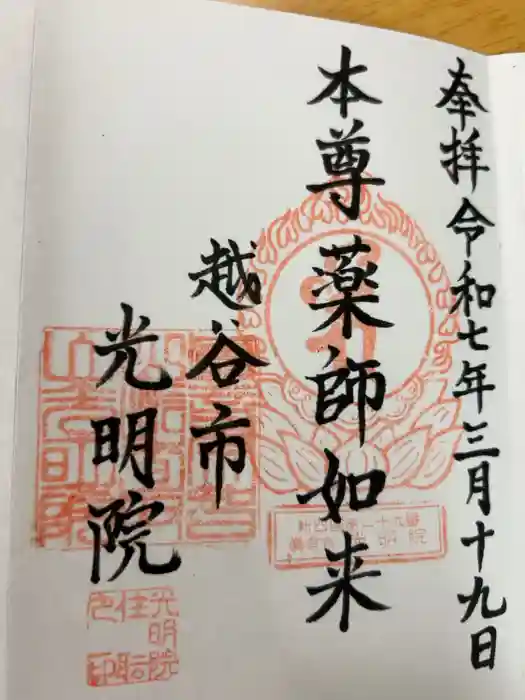 奉拝令和七年三月十九日
本尊薬師如来
越谷市
光明院
光明院
住職
之印